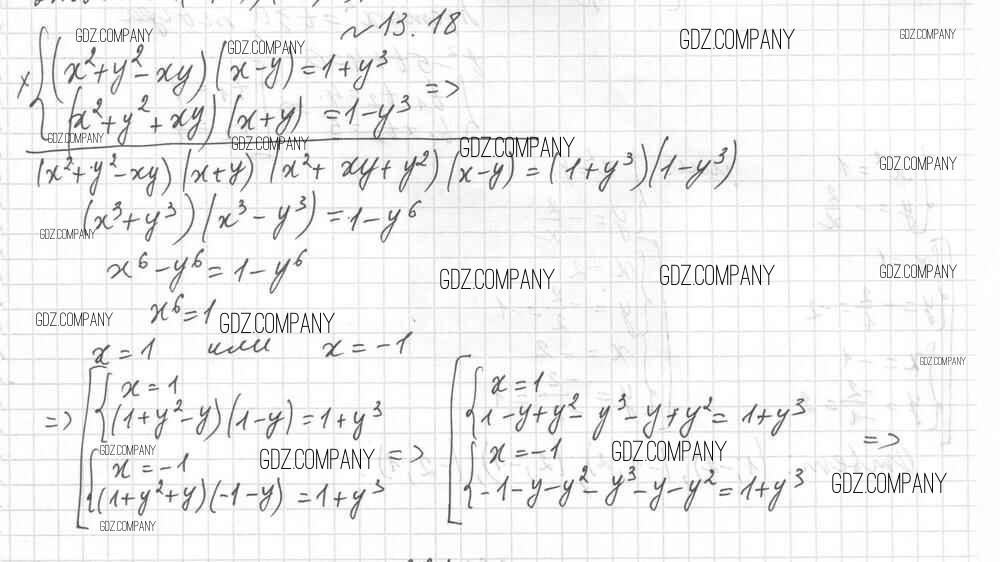 №13.18
GDZ.COMPANY GDZ.COMPANY GDZ.COMPANY GDZ.COMPANY
× { (x²+y²-xy)(x-y)=1+y³
(x²+y²+xy)(x+y)=1-y³ =>
GDZ.COMPANY GDZ.COMPANY GDZ.COMPANY GDZ.COMPANY
(x²+y²-xy)(x+y)(x²+xy+y²)(x-y)=(1+y³)(1-y³)
(x³+y³)(x³-y³)=1-y⁶
GDZ.COMPANY
x⁶-y⁶=1-y⁶
GDZ.COMPANY GDZ.COMPANY GDZ.COMPANY
x⁶=1
GDZ.COMPANY GDZ.COMPANY
x=1 или x=-1
GDZ.COMPANY
=> [ { x=1 [ { x=1
(1+y²-y)(1-y)=1+y³ 1-y+y²-y³-y+y²=1+y³
GDZ.COMPANY GDZ.COMPANY => GDZ.COMPANY =>
{ x=-1 { x=-1
(1+y²+y)(-1-y)=1+y³ -1-y-y²-y³-y-y²=1+y³
GDZ.COMPANY GDZ.COMPANY